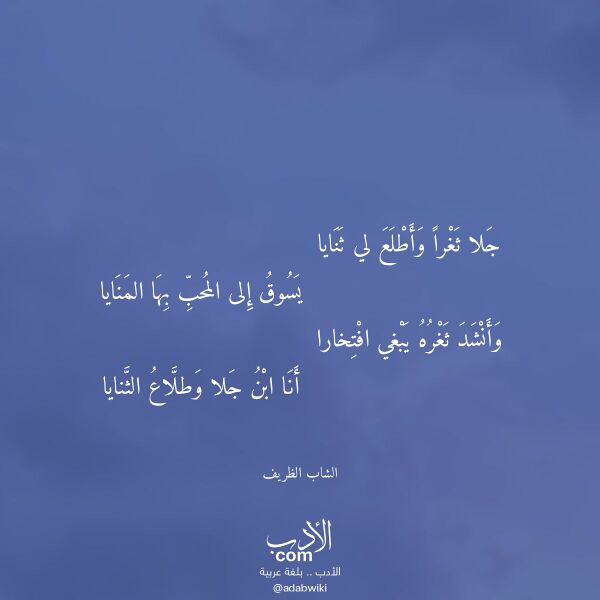 جَلا ثَغْراً وَأَطْلَعَ لي ثَنَايا
يَسُوقُ إِلى المُحبِّ بِهَا المَنَايا
وَأَنْشَدَ ثَغْرُهُ يَبْغي افْتِخارا
أَنَا ابْنُ جَلا وَطلَّاعُ الثَّنايا
الشاب الظريف
الأدب
com
الأدب .. بلغة عربية
@adabwiki